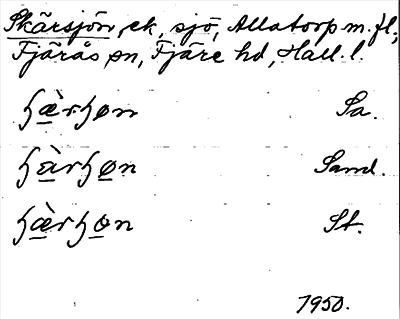 Skärsjön, ek, sjö, Allatorp m. fl.,
Fjärås sn, Fjäre hd, Hall. l.
ɧæ̀rɧøn Sa.
ɧàrɧøn Sand.
ɧæ̀rɧøn St.
1950.